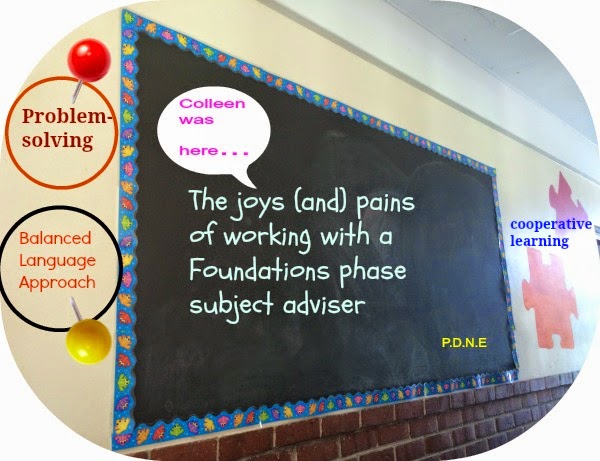 Problem-
solving
Balanced
Language
Approach
Colleen
was
here...
The joys (and) pains
of working with a
Foundations phase
subject adviser
P.D.N.E
cooperative
learning